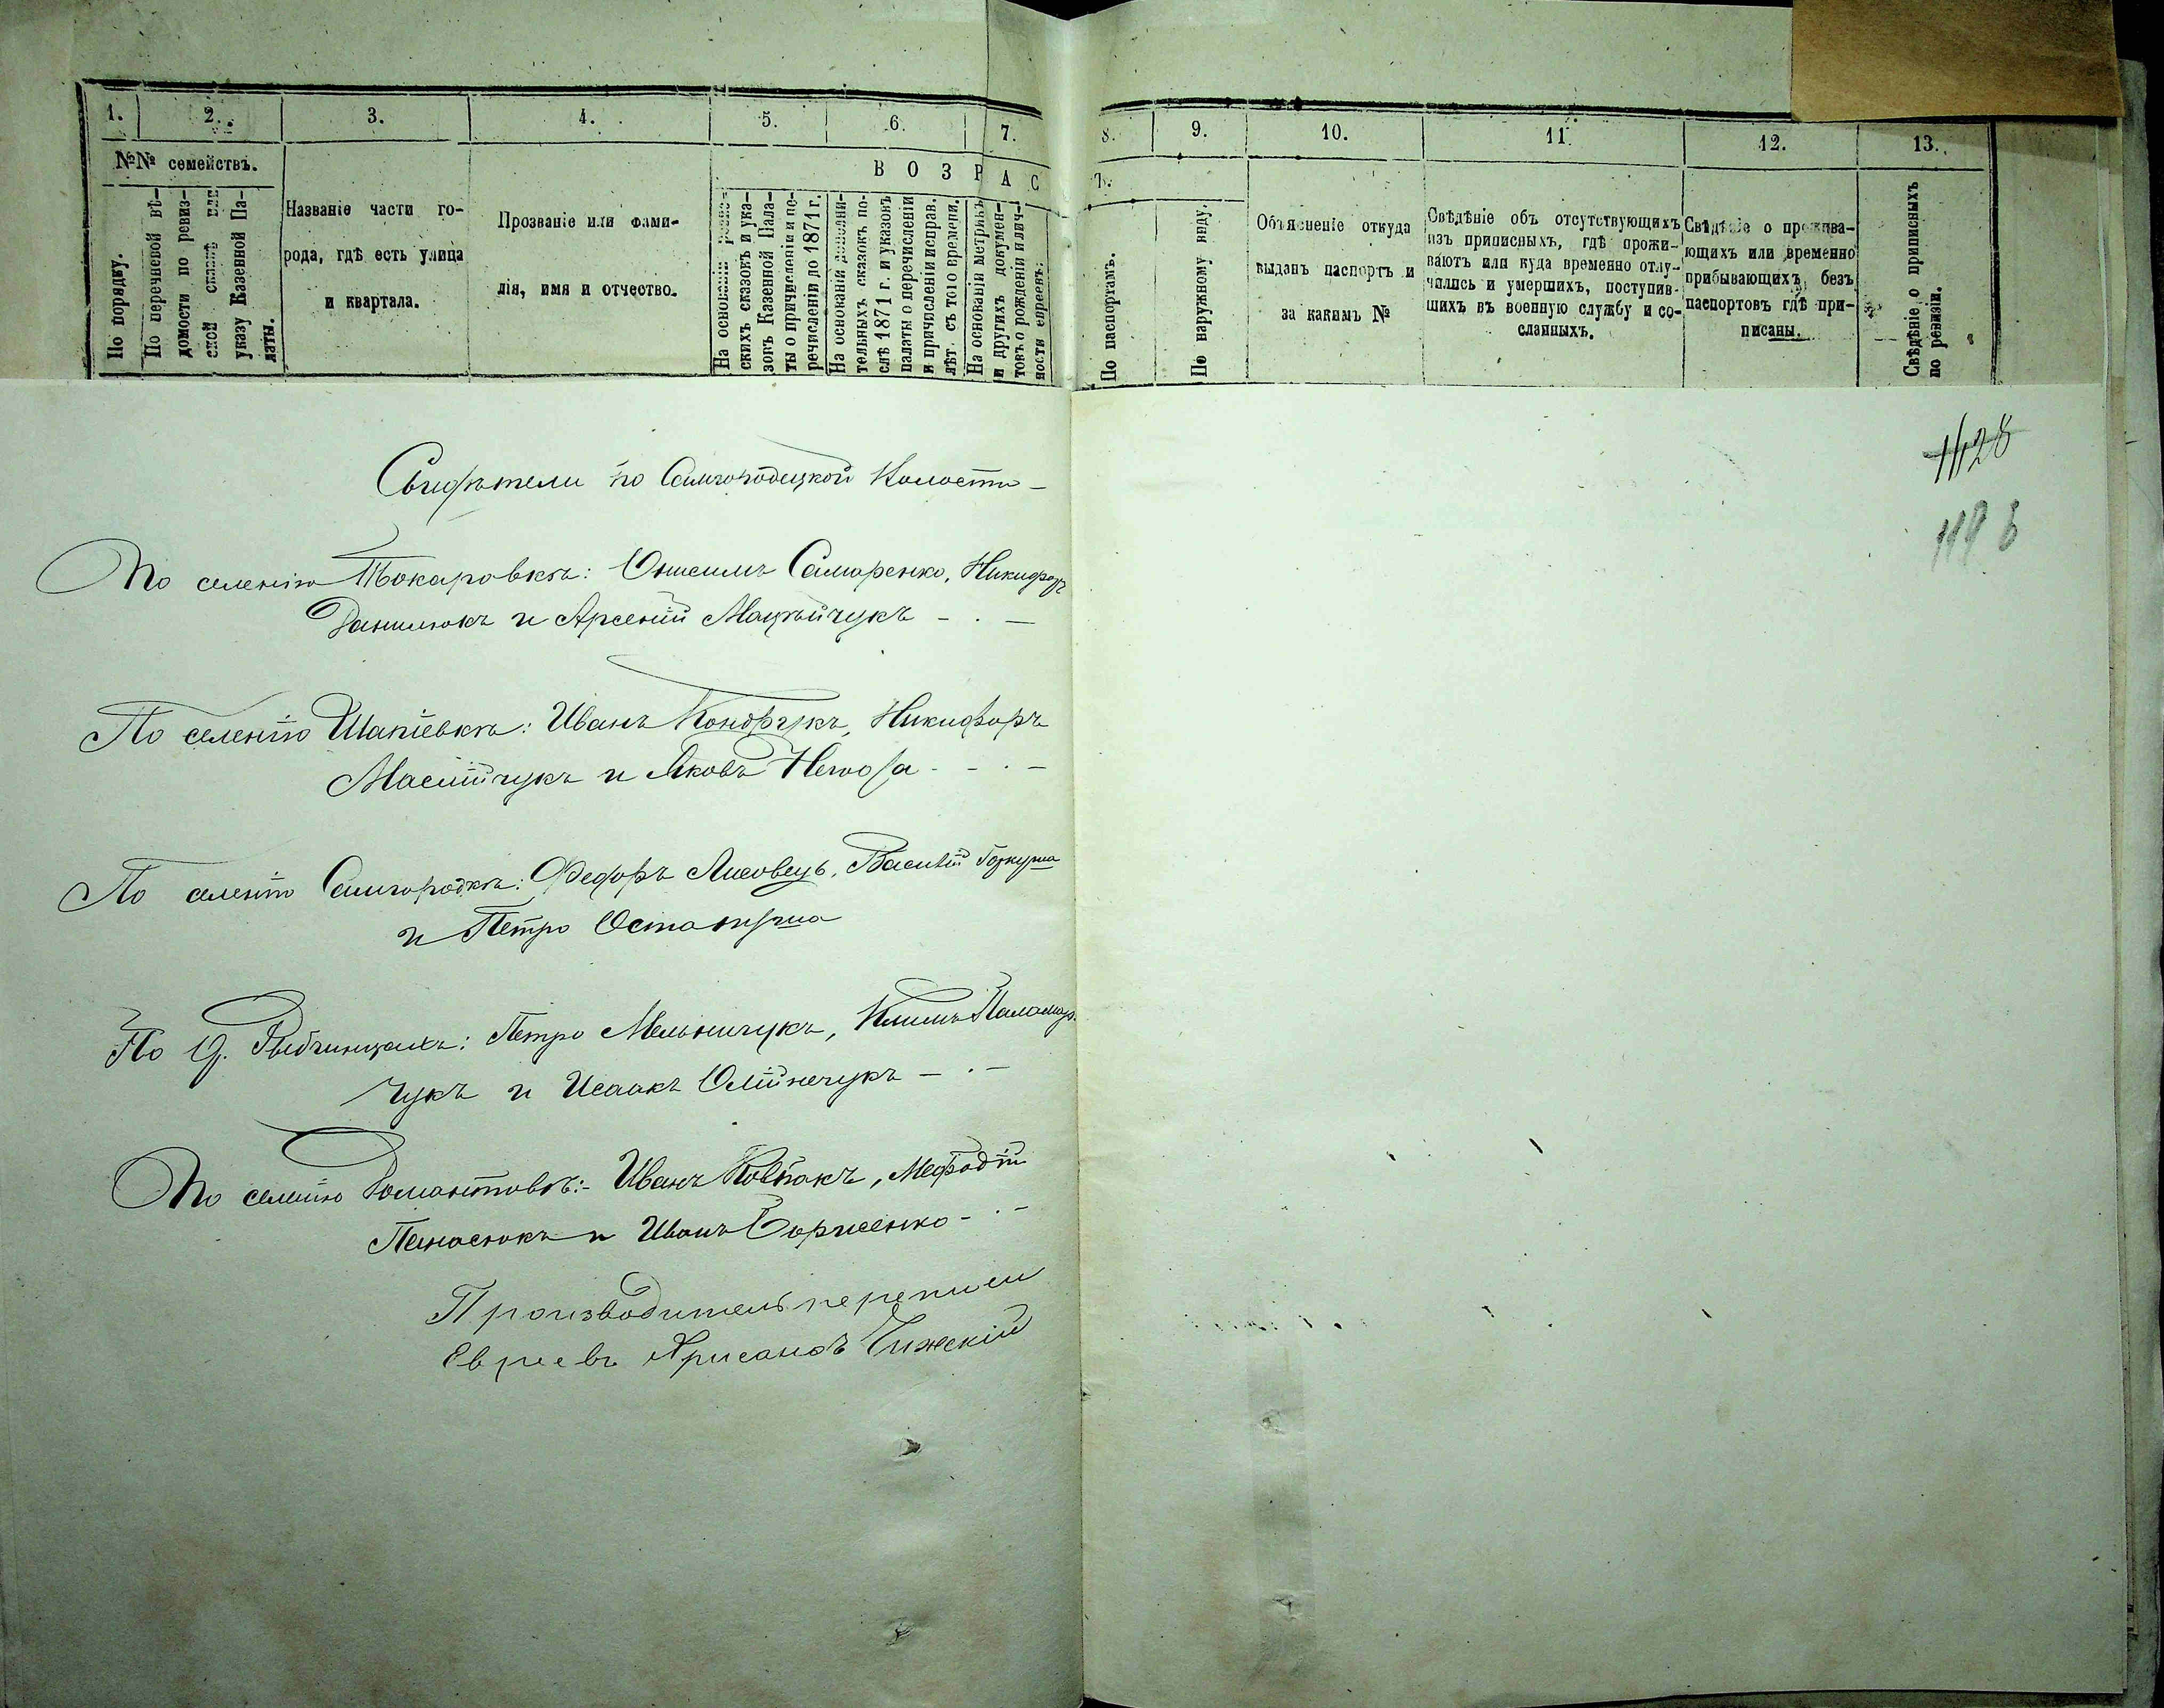 1. 2. 3. 4. 5. 6. 7. 8. 9. 10. 11. 12. 13.
№№ семействъ.
По порядку.
По перечневой вѣ-
домости по ревиз-
ской сказкѣ или
указу Казенной Па-
латы.
Названіе части го-
рода, гдѣ есть улица
и квартала.
Прозваніе или фами-
лія, имя и отчество.
В О З Р А С Т.
На основаніи ревиз-
скихъ сказокъ и ука-
зовъ Казенной Пала-
ты о причисленіи и пе-
речисленіи до 1871 г.
На основаніи дополни-
тельныхъ сказокъ по-
слѣ 1871 г. и указовъ
палаты о перечисленіи
и причисленіи исправ.
лѣт. съ того времени.
На основаніи метрикъ
и другихъ докумен-
товъ о рожденіи и лич-
ности евреевъ.
По паспортамъ.
По наружному виду.
Объясненіе откуда
выданъ паспортъ и
за какимъ №
Свѣдѣніе объ отсутствующихъ
изъ приписныхъ, гдѣ прожи-
ваютъ или куда временно отлу-
чились и умершихъ, поступив-
шихъ въ военную службу и со-
сланныхъ.
Свѣдѣніе о прожива-
ющихъ или временно
прибывающихъ безъ
паспортовъ гдѣ при-
писаны.
Свѣдѣніе о приписныхъ
по ревизіи.
Свидѣтели по Самгородецкой Волости –
По селенію Токаровкѣ: Онисимъ Самаренко, Никифоръ
Данилюкъ и Арсеній Мацѣйчукъ – . –
По селенію Шапіевкѣ: Иванъ Кондрчукъ, Никифоръ
Маслійчукъ и Яковъ – . –
По селенію Самгородкѣ: Федоръ Лисовецъ, Василій
и Петро
По д. Рыбчинцахъ: Петро Мельничукъ, Климъ Паламар-
чукъ и Исаакъ Олійнечукъ – . –
По селенію Романтовкѣ: – Иванъ Ковпакъ, Мефодій
Панасюкъ и Иванъ Борисенко – . –
Производитель переписи
Евреевъ Хрисанфъ Чижскій